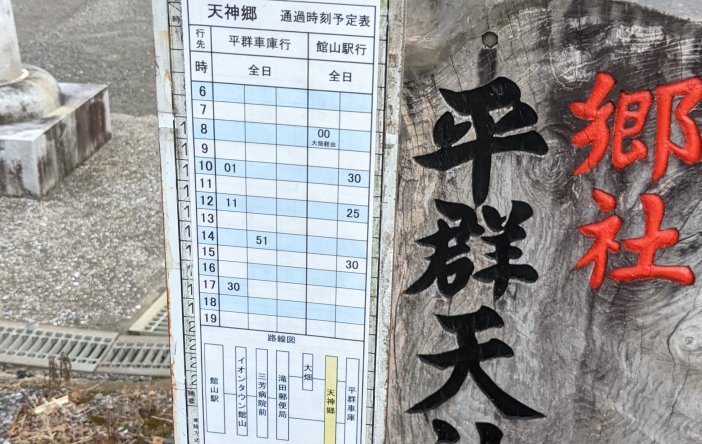 天神郷 通過時刻予定表
行先 平群車庫行 館山駅行
時 全日 全日
6
7
8 00
大畑経由
9
10 01 30
11
12 11 25
13
14 51
15 30
16
17 30
18
19
路線図
館山駅
イオンタウン館山
三芳病院前
滝田郵便局
大畑
天神郷
平群車庫
郷社
平群天